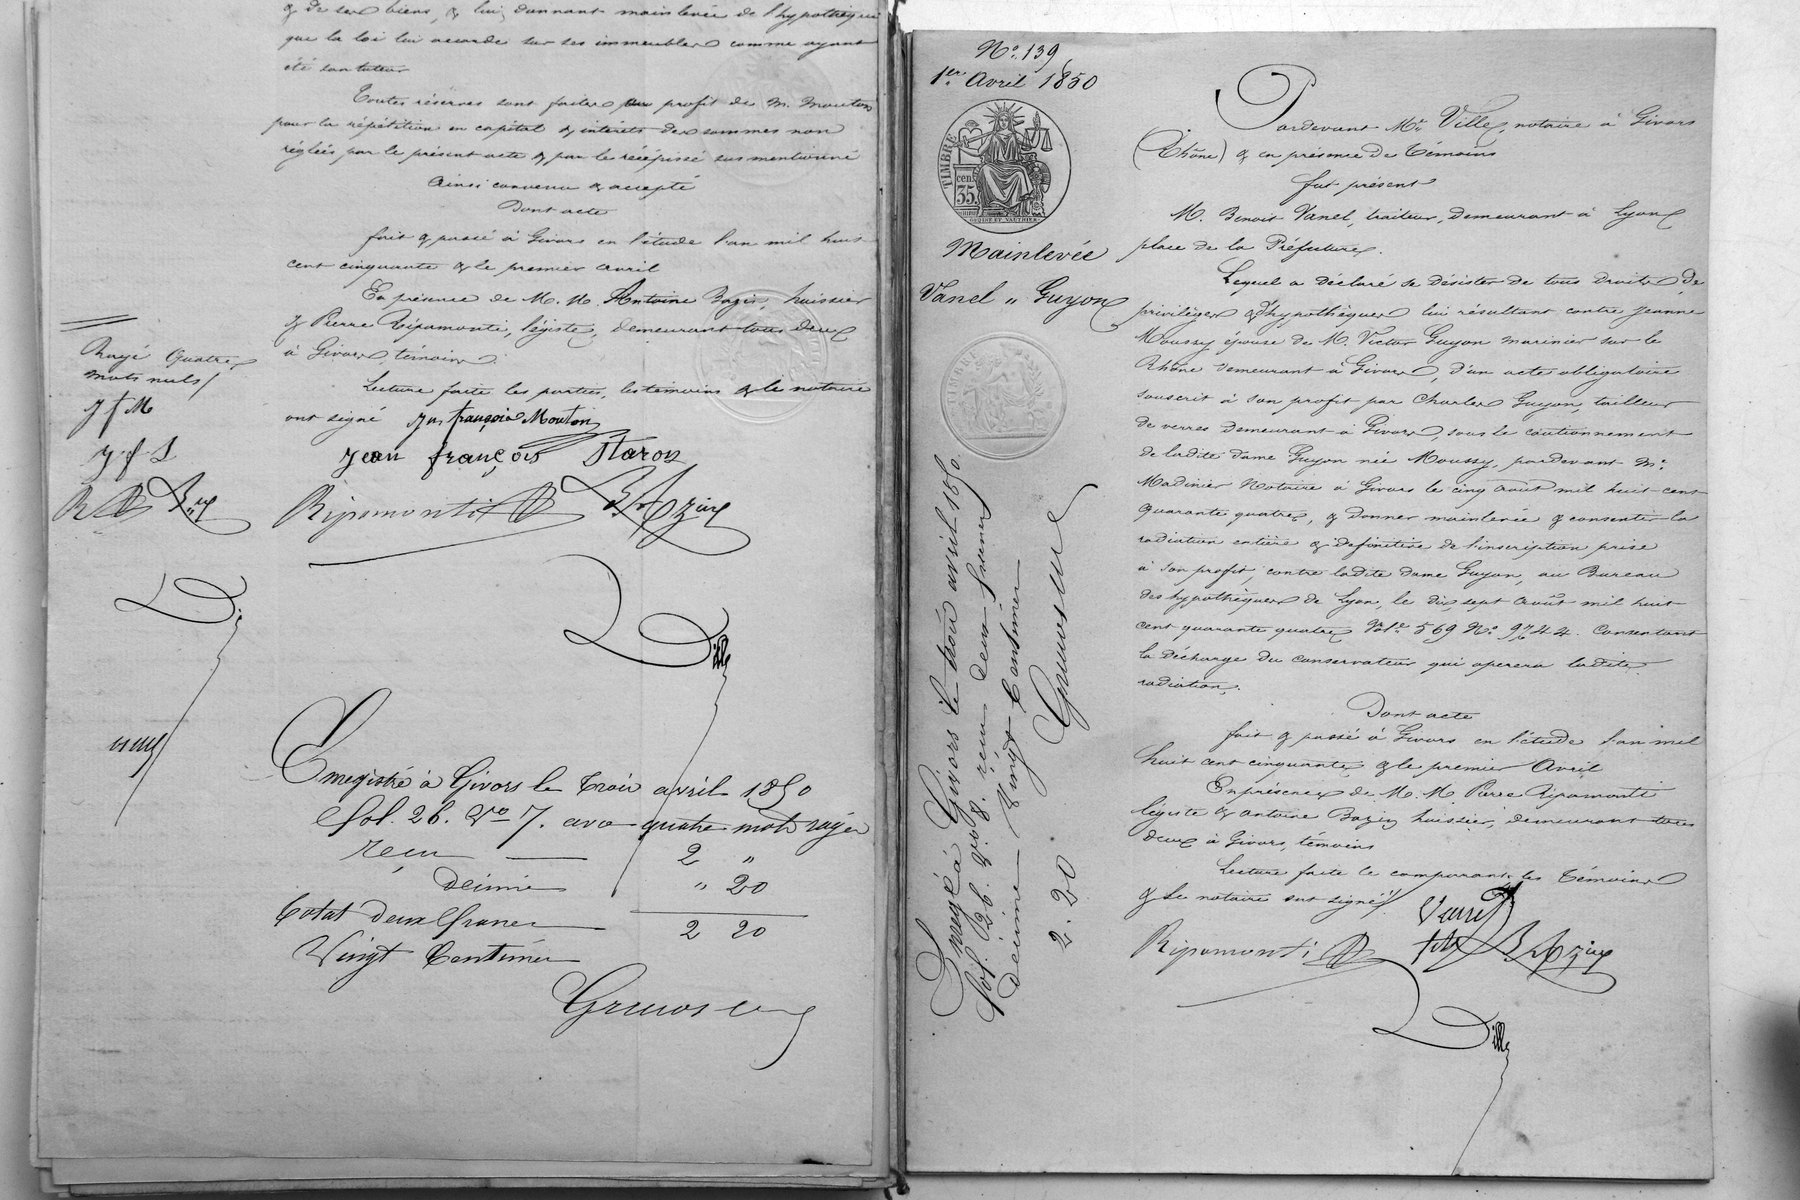 & de ses biens, & lui donnant mainlevée de l'hypothèque
que la loi lui accorde sur ses immeubles comme ayant
été son tuteur
Toutes réserves sont faites au profit de M. Mouton
pour la répétition en capital & intérêts des sommes non
réglées par le présent acte & par le récépissé sus mentionné
Ainsi convenu & accepté
Dont acte
fait & passé à Givors en l'étude l'an mil huit
cent cinquante & le premier avril
En présence de M. M. Antoine Bazin, huissier
& Pierre Ripamonti, légiste, demeurant tous deux
à Givors, témoins.
Lecture faite les parties, les témoins & le notaire
ont signé
françois Mouton
jean françois Staron
Ripamonti
BAzin
Rayé quatre
mots nuls
J f M
J f S
Ville
Enregistré à Givors le trois avril 1850
fol. 26. Vo 7. avec quatre mots rayés
reçu 2 "
décime " 20
total deux francs 2 20
Vingt Centimes
N° 139
1er Avril 1850
TIMBRE
cen.
35.
Mainlevée
Vanel " Guyon
Enregé à Givors le trois avril 1850.
fol. 26. Vo 8. reçu deux francs
décime Vingt Centimes
2. 20
Pardevant Me Ville, notaire à Givors
(Rhône) & en présence de témoins
fut présent
M. Benoit Vanel, traiteur, demeurant à Lyon
place de la Préfecture.
Lequel a déclaré se désister de tous droits de
privilèges & d'hypothèques lui résultant contre Jeanne
Moussy épouse de M. Victor Guyon marinier sur le
Rhône demeurant à Givors, d'un acte obligatoire
souscrit à son profit par Charles Guyon, tailleur
de verres demeurant à Givors, sous le cautionnement
de ladite dame Guyon née Moussy, pardevant Me
Madinier Notaire à Givors le cinq août mil huit cent
quarante quatre, & donner mainlevée & consentir la
radiation entière & définitive de l'inscription prise
à son profit, contre ladite dame Guyon, au Bureau
des hypothèques de Lyon, le dix sept août mil huit
cent quarante quatre Vole 569 N° 9744. Consentant
la décharge du conservateur qui opèrera ladite
radiation.
Dont acte
fait & passé à Givors en l'étude l'an mil
huit cent cinquante, & le premier Avril
En présence de M. M. Pierre Ripamonti
légiste & Antoine Bazin huissier, demeurant tous
deux à Givors, témoins
Lecture faite le comparant, les témoins
& le notaire ont signé
Ripamonti
BAzin
Ville